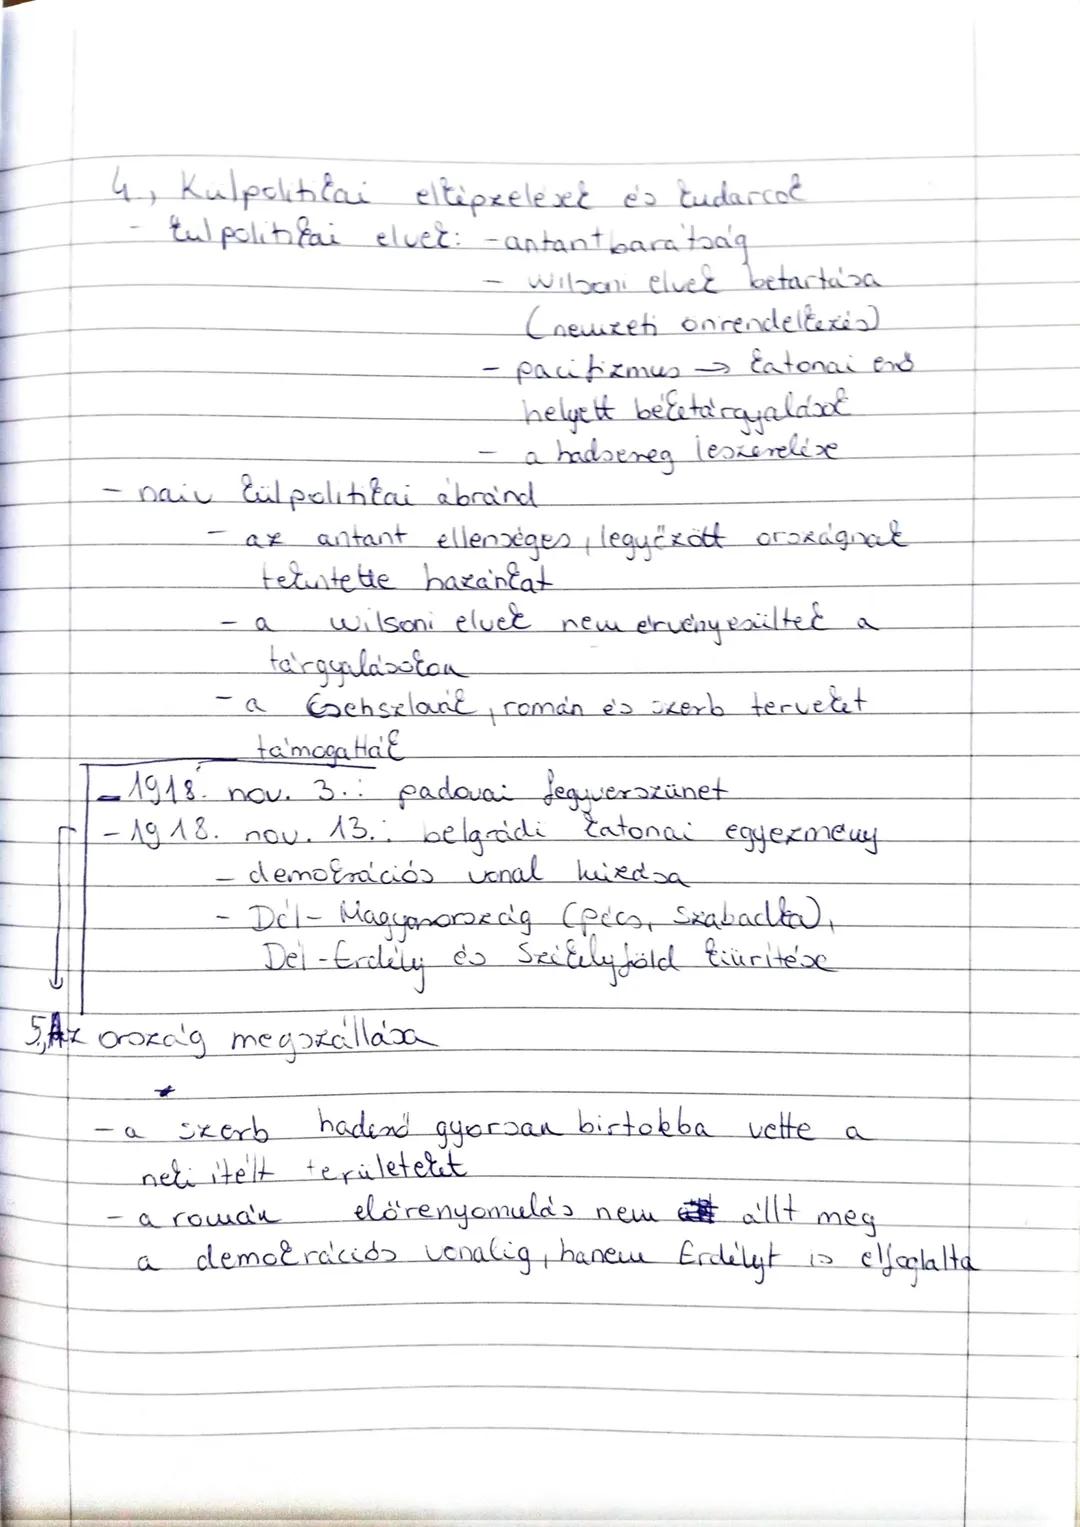 4., Külpolitikai elképzelések és kudarcok
- külpolitikai elvek: - antantbarátság
- wilsoni elvek betartása
(nemzeti önrendelkezés)
- pacifizmus → katonai erő
helyett béketárgyalások
- a hadsereg leszerelése
- naiv külpolitikai ábránd
- az antant ellenséges, legyőzött országnak
tekintette hazánkat
- a wilsoni elvek nem érvényesültek a
tárgyalásokon
- a csehszlovák, román és szerb terveket
támogatták
- 1918. nov. 3.: padovai fegyverszünet
- 1918. nov. 13.: belgrádi katonai egyezmény
- demokrációs vonal húzása
- Dél-Magyarország (Pécs, Szabadka),
Dél-Erdély és Székelyföld kiürítése
5, Az ország megszállása
- a szerb haderő gyorsan birtokba vette a
neki ítélt területeket
- a román előrenyomulás nem állt meg
a demokrációs vonalig, hanem Erdélyt is elfoglalta